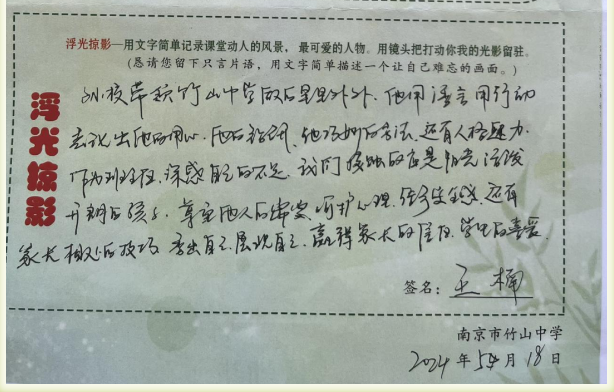 浮光掠影—用文字简单记录课堂动人的风景，最可爱的人物。用镜头把打动你我的光影留驻。
（恳请您留下只言片语，用文字简单描述一个让自己难忘的画面。）
浮光掠影
孙校带领竹山中学的里里外外，他用语言用行动
表现出他的用心，他的钻研，他巧妙的方法，还有人格魅力。
作为班主任，深感自己的不足，我们接触的应是阳光活泼
开朗的孩子，尊重他人的需要，呵护心理，给予安全感，还有
家长相处的技巧，秀出自己，展现自己，赢得家长的信任，学生的喜爱。
签名：王楠
南京市竹山中学
2024年5月18日